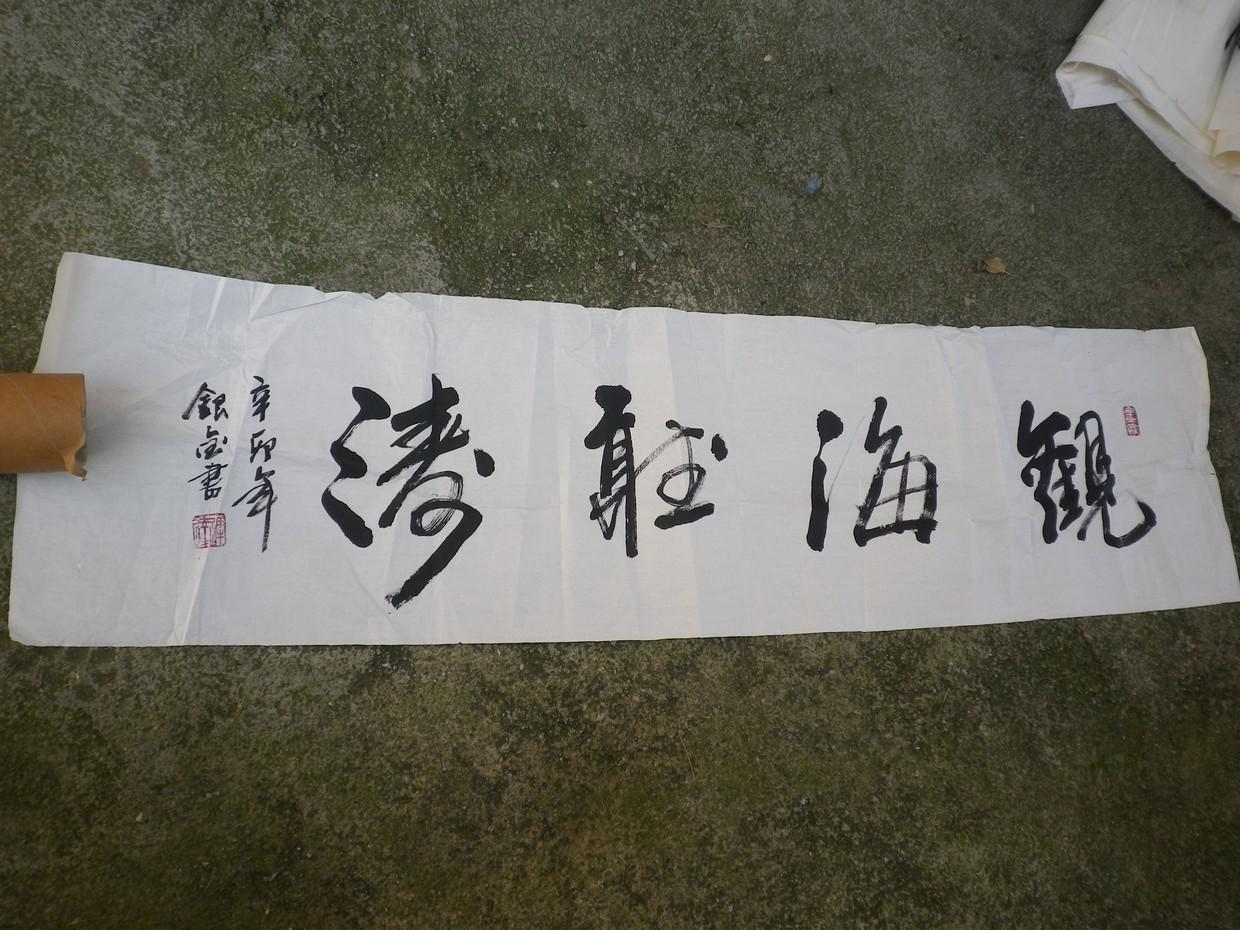 觀海聽濤
辛卯年
銀金書